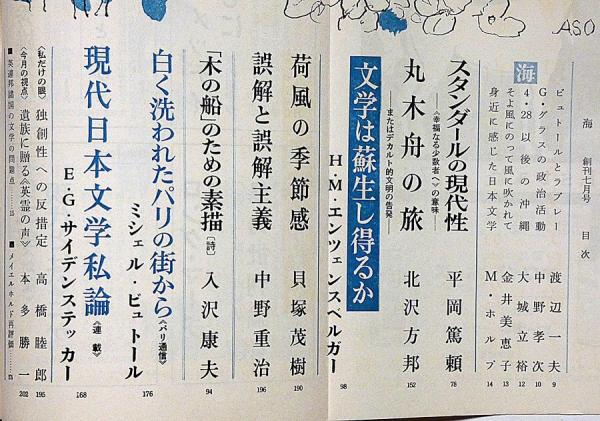 ASO
海 創刊七月号 目次
海
ビュトールとラブレー 渡辺一夫 9
G・グラスの政治活動 中野孝次 10
4・28以後の沖縄 大城立裕 12
そよ風にのって風に吹かれて 金井美恵子 13
身近に感じた日本文学 M・ホルプ 14
スタンダールの現代性
《幸福なる少数者》の意味 平岡篤頼 78
丸木舟の旅
またはデカルト的文明の告発 北沢方邦 152
文学は蘇生し得るか
H・M・エンツェンスベルガー 98
荷風の季節感 貝塚茂樹 190
誤解と誤解主義 中野重治 196
「木の船」のための素描〔詩〕 入沢康夫 94
白く洗われたパリの街から《パリ通信》
ミシェル・ビュトール 176
現代日本文学私論《連載》
E・G・サイデンステッカー 168
《私だけの眼》 独創性への反措定 高橋睦郎 195
《今月の視点》 遺族に贈る《英霊の声》 本多勝一 202
■英連邦諸国の文学の問題点
■メイエルホルド再評価